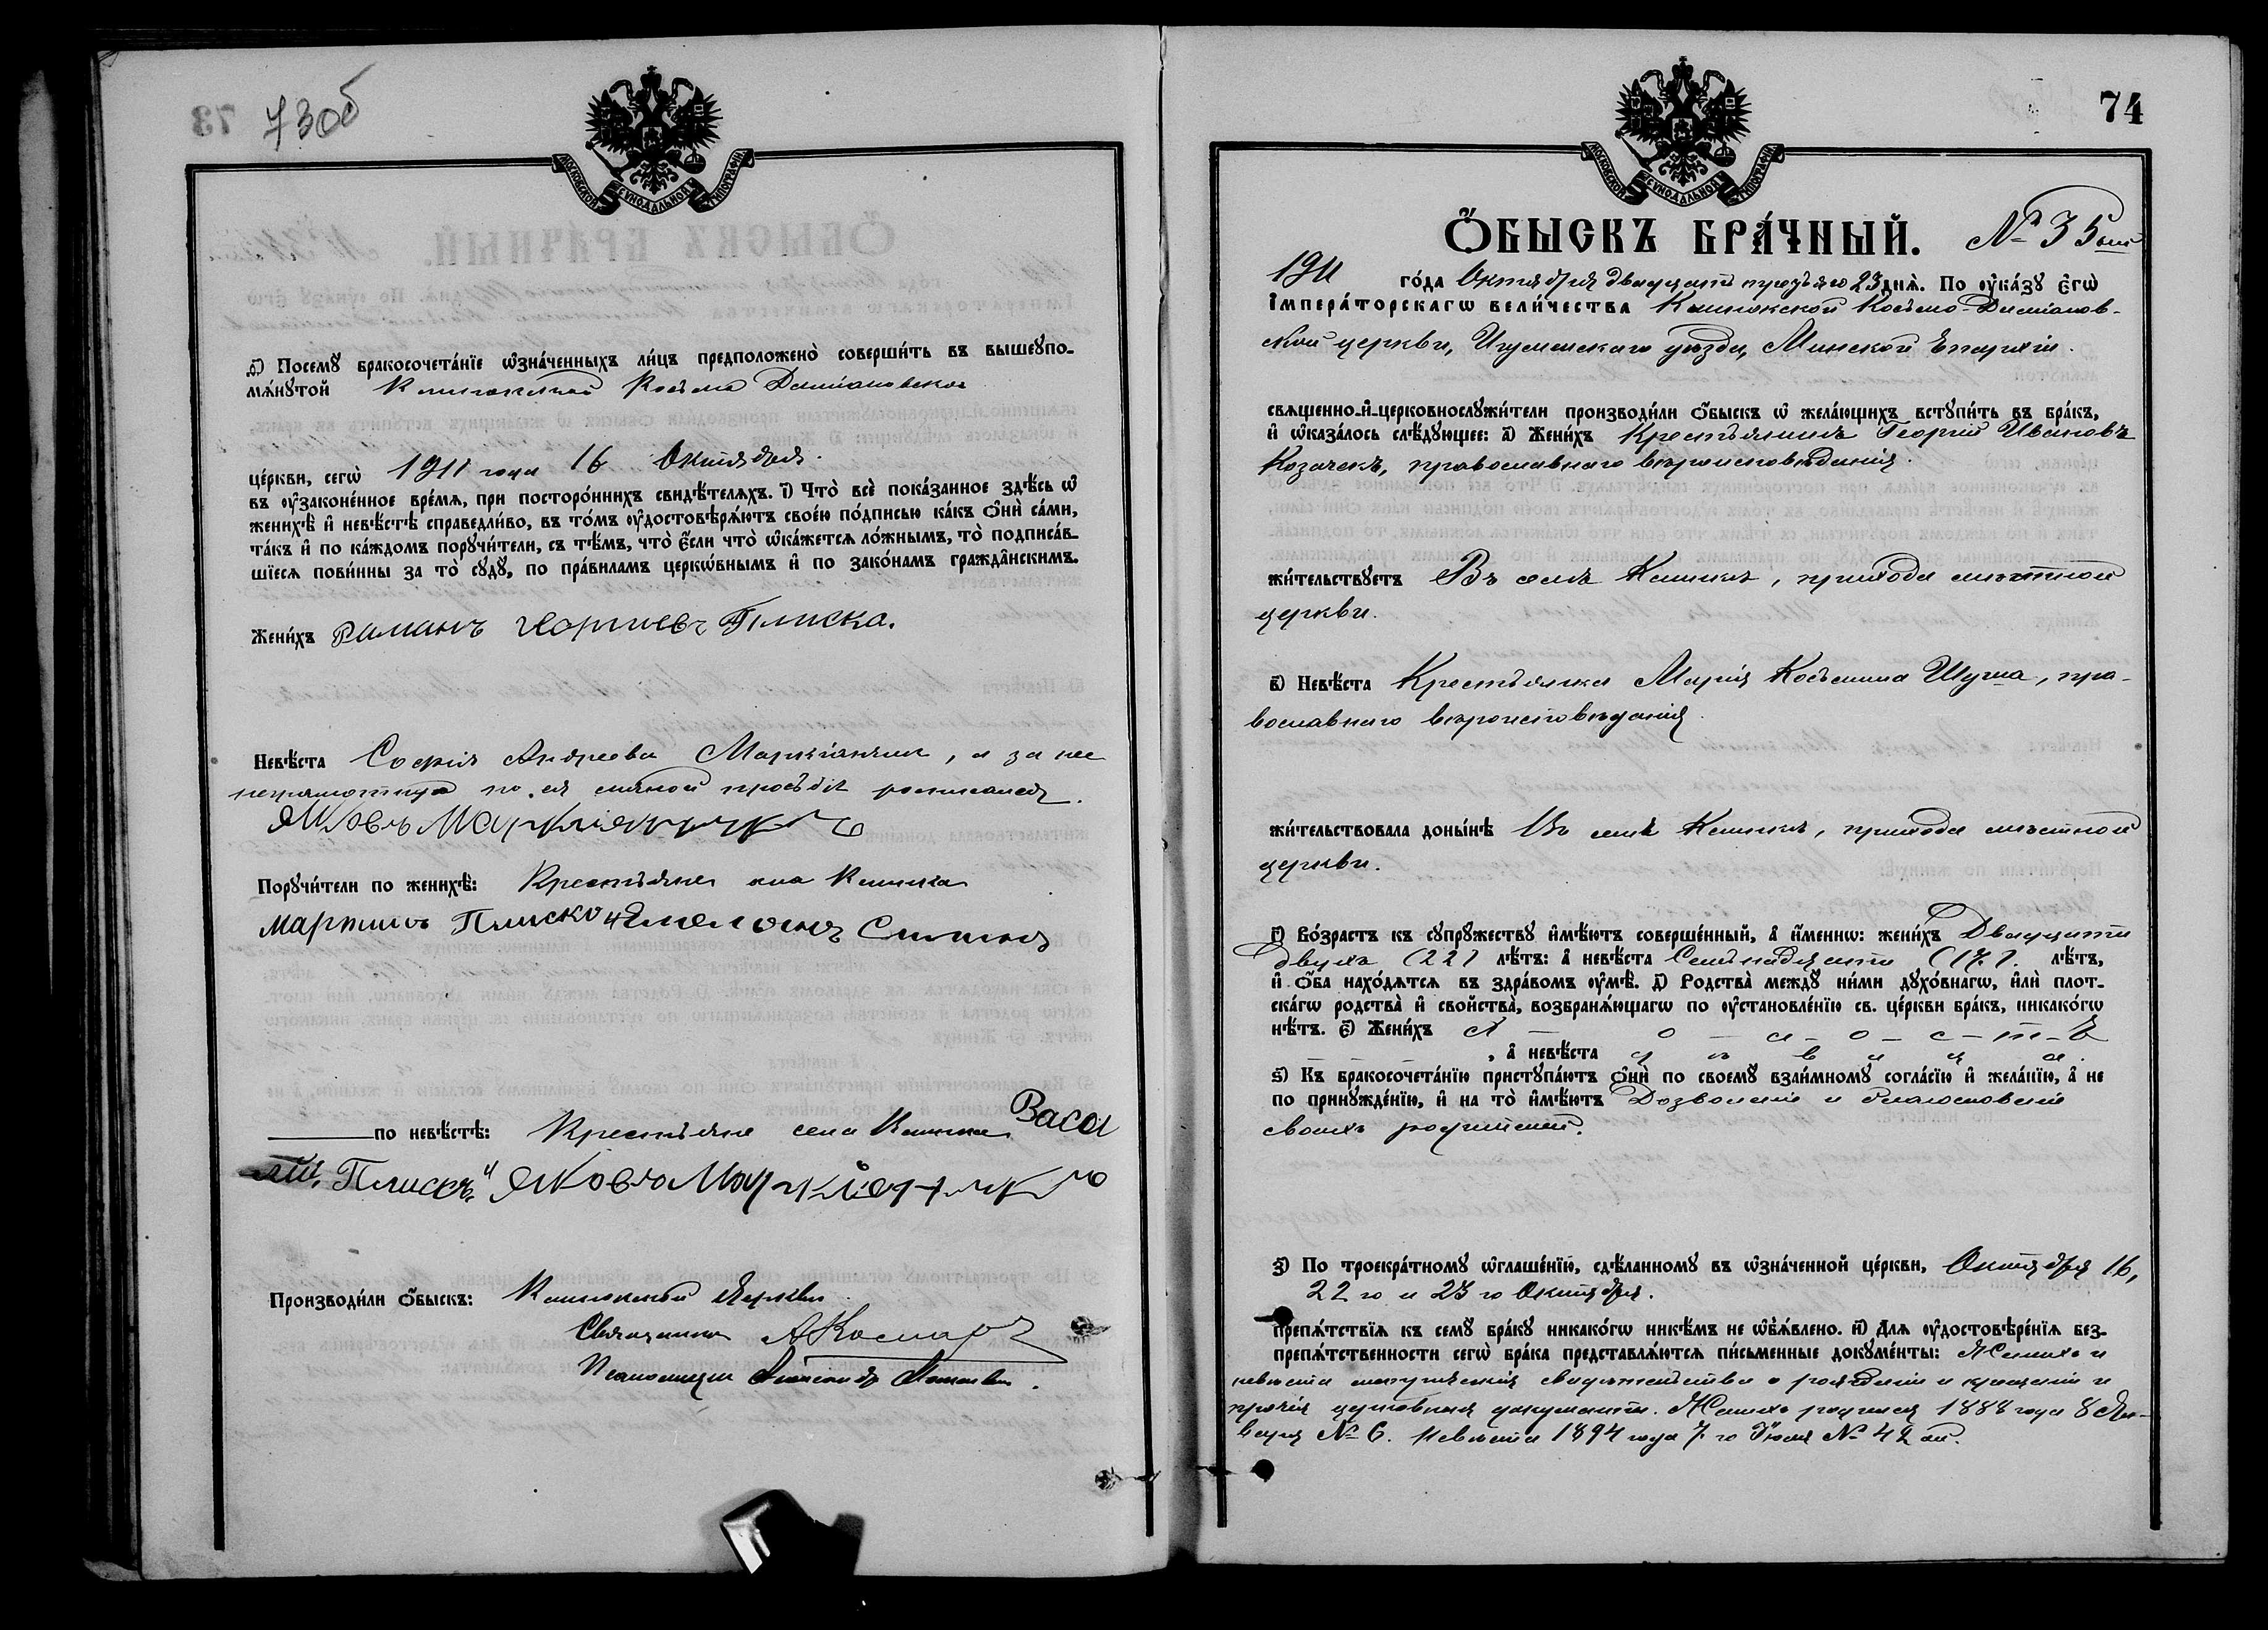 73об
МОСКОВСКОЙ СѴНОДАЛЬНОЙ ТИПОГРАФІИ.
д҃) Посемꙋ̀ бракосочета́нїе ѡ҆зна́ченныхъ ли́цъ предположено̀ соверши́ть въ вышеꙋпо-
мѧ́нꙋтой Косьмо Даміановской
це́ркви, сегѡ̀ 1911 года 16 Октября.
въ ᲂу҆законе́нное вре́мѧ, при посторо́ннихъ свидѣ́телѧхъ. і҃) Что̀ всѐ пока́занное здѣ́сь ѡ҆
женихѣ̀ и҆ невѣ́стѣ справедли́во, въ то́мъ ᲂу҆достовѣрѧ́ютъ свое́ю по́дписью ка́къ ѻ҆нѝ са́ми,
та́къ и҆ по ка́ждомъ порꙋчи́тели, съ тѣ́мъ, что̀ є҆́сли что̀ ѡ҆ка́жетсѧ ло́жнымъ, то̀ подписа́в-
шїесѧ пови́нны за то̀ сꙋдꙋ̀, по пра́виламъ церкѡ́внымъ и҆ по зако́намъ гражда́нскимъ.
Жени́хъ Раманъ Георгиевъ Плиска.
Невѣ́ста Софія Андреева, а за нее
неграмотную по ея личной просьбѣ росписался
Яковъ
Порꙋчи́тели по женихѣ̀: Крестьяне села
Мартинъ Плиско и
по невѣ́стѣ: Крестьяне села Васи
лій Плискъ и Яковъ
Производи́ли ѻ҆́быскъ: Церкви
Священникъ
Псаломщикъ Александр
74
МОСКОВСКОЙ СѴНОДАЛЬНОЙ ТИПОГРАФІИ.
Ѻ҆́БЫСКЪ БРА́ЧНЫЙ. № 35ый
1911 го́да Октября двадцать третьяго 23 днѧ̀. По ᲂу҆ка́зꙋ є҆гѡ̀
І҆мпера́торскагѡ вели́чества Косьмо-Даміанов-
ской церкви, Игуменскаго уѣзда, Минской Епархіи.
свѧщенно-и҆-церковнослꙋжи́тели производи́ли ѻ҆́быскъ ѡ҆ жела́ющихъ встꙋпи́ть въ бра́къ,
и҆ ѡ҆каза́лось слѣ́дꙋющее: а҃) Жени́хъ Крестьянинъ Георгій Ивановъ
Козачекъ, православнаго вѣроисповѣданія.
жи́тельствꙋетъ Въ селѣ, прихода мѣстной
церкви.
в҃) Невѣ́ста Крестьянка Марія Косьмина Шуша, пра-
вославнаго вѣроисповѣданія.
жи́тельствовала доны́нѣ Въ селѣ, прихода мѣстной
церкви.
г҃) Во́зрастъ къ сꙋпрꙋ́жествꙋ и҆мѣ́ютъ соверше́нный, а҆ и҆́меннѡ: жени́хъ Двадцати
двухъ (22) лѣ́тъ: а҆ невѣ́ста Семнадцати (17). лѣ́тъ,
и҆ ѻ҆́ба нахо́дѧтсѧ въ здра́вомъ ᲂу҆мѣ̀. д҃) Родства̀ междꙋ̀ ни́ми дꙋхо́внагѡ, и҆лѝ плот-
ска́гѡ родства̀ и҆ свойства̀, возбранѧ́ющагѡ по ᲂу҆становле́нїю св. це́ркви бра́къ, никако́гѡ
нѣ́тъ. є҃) Жени́хъ х — о — л — о — с — т — ъ
, а҆ невѣ́ста д ѣ в и ц а.
ѕ҃) Къ бракосочета́нїю пристꙋпа́ютъ ѻ҆нѝ по своемꙋ̀ взаи́мномꙋ согла́сїю и҆ жела́нїю, а҆ не
по принꙋжде́нїю, и҆ на то̀ и҆мѣ́ютъ Дозволеніе и благословеніе
своихъ родителей.
з҃) По троекра́тномꙋ ѡ҆глаше́нїю, сдѣ́ланномꙋ въ ѡ҆зна́ченной це́ркви, Октября 16,
22го и 23го Октября.
препѧ́тствїѧ къ семꙋ̀ бра́кꙋ никако́гѡ никѣ́мъ не ѡ҆б̾ѧ́влено. и҃) Длѧ ᲂу҆достовѣре́нїѧ без-
препѧ́тственности сегѡ̀ бра́ка представлѧ́ютсѧ пи́сьменные докꙋме́нты: Женихъ и
невѣста метрическія свидѣтельства о рожденіи и крещеніи и
прочія церковныя документы. Женихъ родился 1888 года 8 Ян-
варя № 6. Невѣста 1894 года 7го Іюля № 42